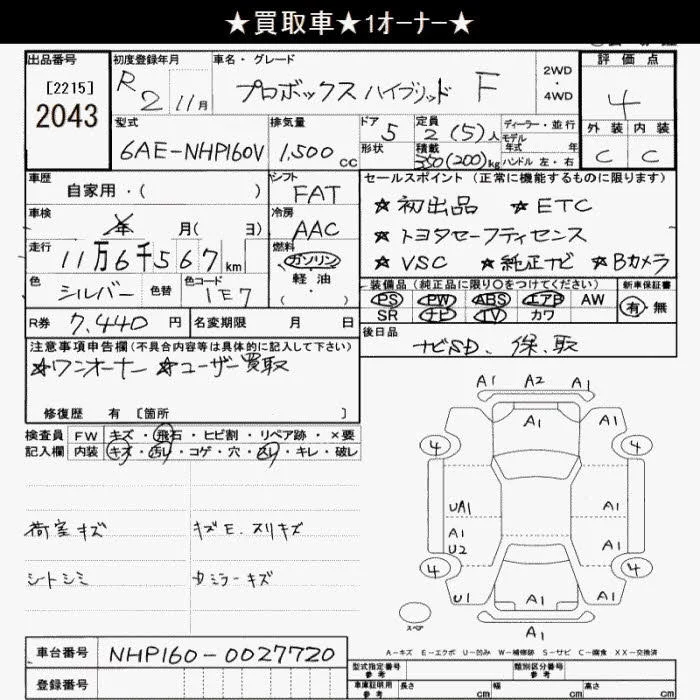 ★買取車★1オーナー★
出品番号
[2215]
2043
初度登録年月
R2 11月
車名・グレード
プロボックスハイブリッド F
2WD
4WD
評価点
4
外装 内装
C C
型式
6AE-NHP160V
排気量
1,500cc
ドア
5
形状
定員
2(5)人
積載
350(200)kg
ディーラー・並行
モデル
年式 年
ハンドル 左・右
車歴
自家用・( )
シフト
FAT
車検
年 月( 日)
冷房
AAC
走行
11万6千567km
燃料
ガソリン
軽油
( ・ )
色
シルバー
色替
色コード
1E7
R券 7,440円
名変期限 月 日
セールスポイント(正常に機能するものに限ります)
★初出品 ★ETC
★トヨタセーフティセンス
★VSC ★純正ナビ ★Bカメラ
装備品(純正品に限り○をつけてください)
新車保証書
PS PW ABS エアB AW
SR ナビ TV カワ
有・無
後日品
ナビSD、保、取
注意事項申告欄(不具合内容等は具体的に記入して下さい)
★ワンオーナー ★ユーザー買取
修復歴 有 [箇所 ]
検査員
記入欄
FW キズ・飛石・ヒビ割・リペア跡・×要
内装 キズ・汚レ・コゲ・穴・スレ・キレ・破レ
荷室キズ
キズE、スリキズ
シートシミ
ミラーキズ
A1 A2 A1
A1
4 4
A1 A1
UA1
A1
U2
A1
4 4
U1 A1 A1
A1
スペア
A-キズ E-エクボ U-凹み W-補修跡 S-サビ C-腐食 XX-交換済
車台番号
NHP160-0027720
登録番号
型式指定番号
参考
類別区分番号
参考
車庫証明用
参考
長さ cm 幅 cm 高さ cm